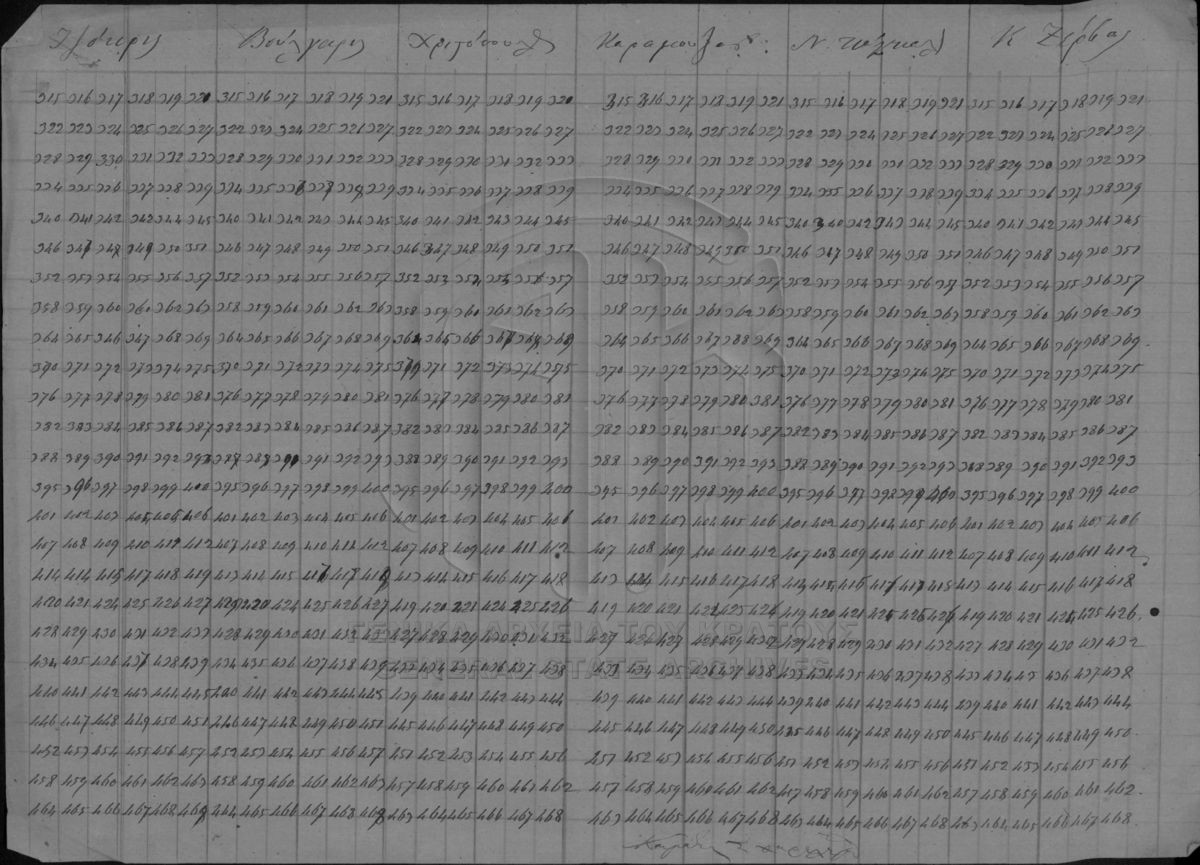 Βούλγαρις Κ Ζέρβας
315 316 317 318 319 320 315 316 317 318 319 321 315 316 317 318 319 320 315 316 317 318 319 321 315 316 317 318 319 321 315 316 317 318 319 321
322 323 324 325 326 327 322 323 324 325 326 327 322 323 324 325 326 327 322 323 324 325 326 327 322 323 324 325 326 327 322 323 324 325 326 327
328 329 330 331 332 333 328 329 330 331 332 333 328 329 330 331 332 333 328 329 330 331 332 333 328 329 330 331 332 333 328 329 330 331 332 333
334 335 336 337 338 339 334 335 336 337 338 339 334 335 336 337 338 339 334 335 336 337 338 339 334 335 336 337 338 339 334 335 336 337 338 339
340 341 342 343 344 345 340 341 342 343 344 345 340 341 342 343 344 345 340 341 342 343 344 345 340 340 342 343 344 345 340 341 342 343 344 345
346 347 348 349 350 351 346 347 348 349 350 351 346 347 348 349 350 351 346 347 348 349 350 351 346 347 348 349 350 351 346 347 348 349 350 351
352 353 354 355 356 357 352 353 354 355 356 357 352 353 354 355 356 357 352 353 354 355 356 357 352 353 354 355 356 357 352 353 354 355 356 357
358 359 360 360 362 363 358 359 360 361 362 363 358 359 360 361 362 363 358 359 360 361 362 363 358 359 360 361 362 363 358 359 360 361 362 363
364 365 346 367 368 369 364 365 366 367 368 369 364 365 366 367 368 369 364 365 366 367 368 369 364 365 366 367 368 369 364 365 366 367 368 369
370 371 372 373 374 375 370 371 372 373 374 375 370 371 372 373 374 375 370 371 372 373 374 375 370 371 372 373 374 375 370 371 372 373 374 375
376 377 378 379 380 381 376 377 378 379 380 381 376 377 378 379 380 381 376 377 378 379 380 381 376 377 378 379 380 381 376 377 378 379 380 381
382 383 384 385 386 387 382 383 384 385 386 387 382 383 384 385 386 387 382 383 384 385 386 387 382 383 384 385 386 387 382 383 384 385 386 387
388 389 390 391 392 393 387 389 390 391 392 393 388 389 390 391 392 393 388 389 390 391 392 393 388 389 390 391 392 393 388 389 390 391 392 393
395 396 397 398 399 400 395 396 397 398 399 400 395 396 397 398 399 400 395 396 397 398 399 400 395 396 397 398 399 400 395 396 397 398 399 400
401 402 403 404 405 406 401 402 403 404 405 406 401 402 403 404 405 406 401 402 403 404 405 406 401 402 403 404 405 406 401 402 403 404 405 406
407 408 409 410 411 412 407 408 409 410 411 412 407 408 409 410 411 412 407 408 409 410 411 412 407 408 409 410 411 412 407 408 409 410 411 412
414 414 415 417 418 419 413 414 415 416 417 418 413 414 415 416 417 418 413 414 415 416 417 418 414 415 416 417 417 418 413 414 415 416 417 418
420 421 424 425 426 427 419 420 424 425 426 427 419 420 421 424 425 426 419 420 421 422 425 426 419 420 421 425 426 426 419 420 421 424 425 426
428 429 430 431 432 433 428 429 430 431 432 433 427 428 429 430 431 432 427 426 427 428 429 430 427 428 429 430 431 432 427 428 429 430 431 432
434 435 436 437 438 439 434 435 436 437 438 439 433 434 435 436 437 438 433 434 435 436 437 438 433 434 435 436 437 438 433 434 435 436 437 438
440 441 442 443 444 445 440 441 442 443 444 445 439 440 441 442 443 444 439 440 441 442 443 444 439 440 441 442 443 444 439 440 441 442 443 444
446 447 448 449 450 451 446 447 448 449 450 451 445 446 447 448 449 450 445 446 447 448 449 450 445 446 447 448 449 450 445 446 447 448 449 450
452 453 454 455 456 457 452 453 454 455 456 457 451 452 453 454 455 456 451 452 453 454 455 456 451 452 453 454 455 456 451 452 453 454 455 456
458 459 460 461 462 463 458 459 460 461 462 463 457 458 459 460 461 462 457 458 459 460 461 462 457 458 459 460 461 462 457 458 459 460 461 462
464 465 466 467 468 469 464 465 466 467 468 469 463 464 465 466 467 468 463 464 465 466 467 468 463 464 465 466 467 468 463 464 465 466 467 468